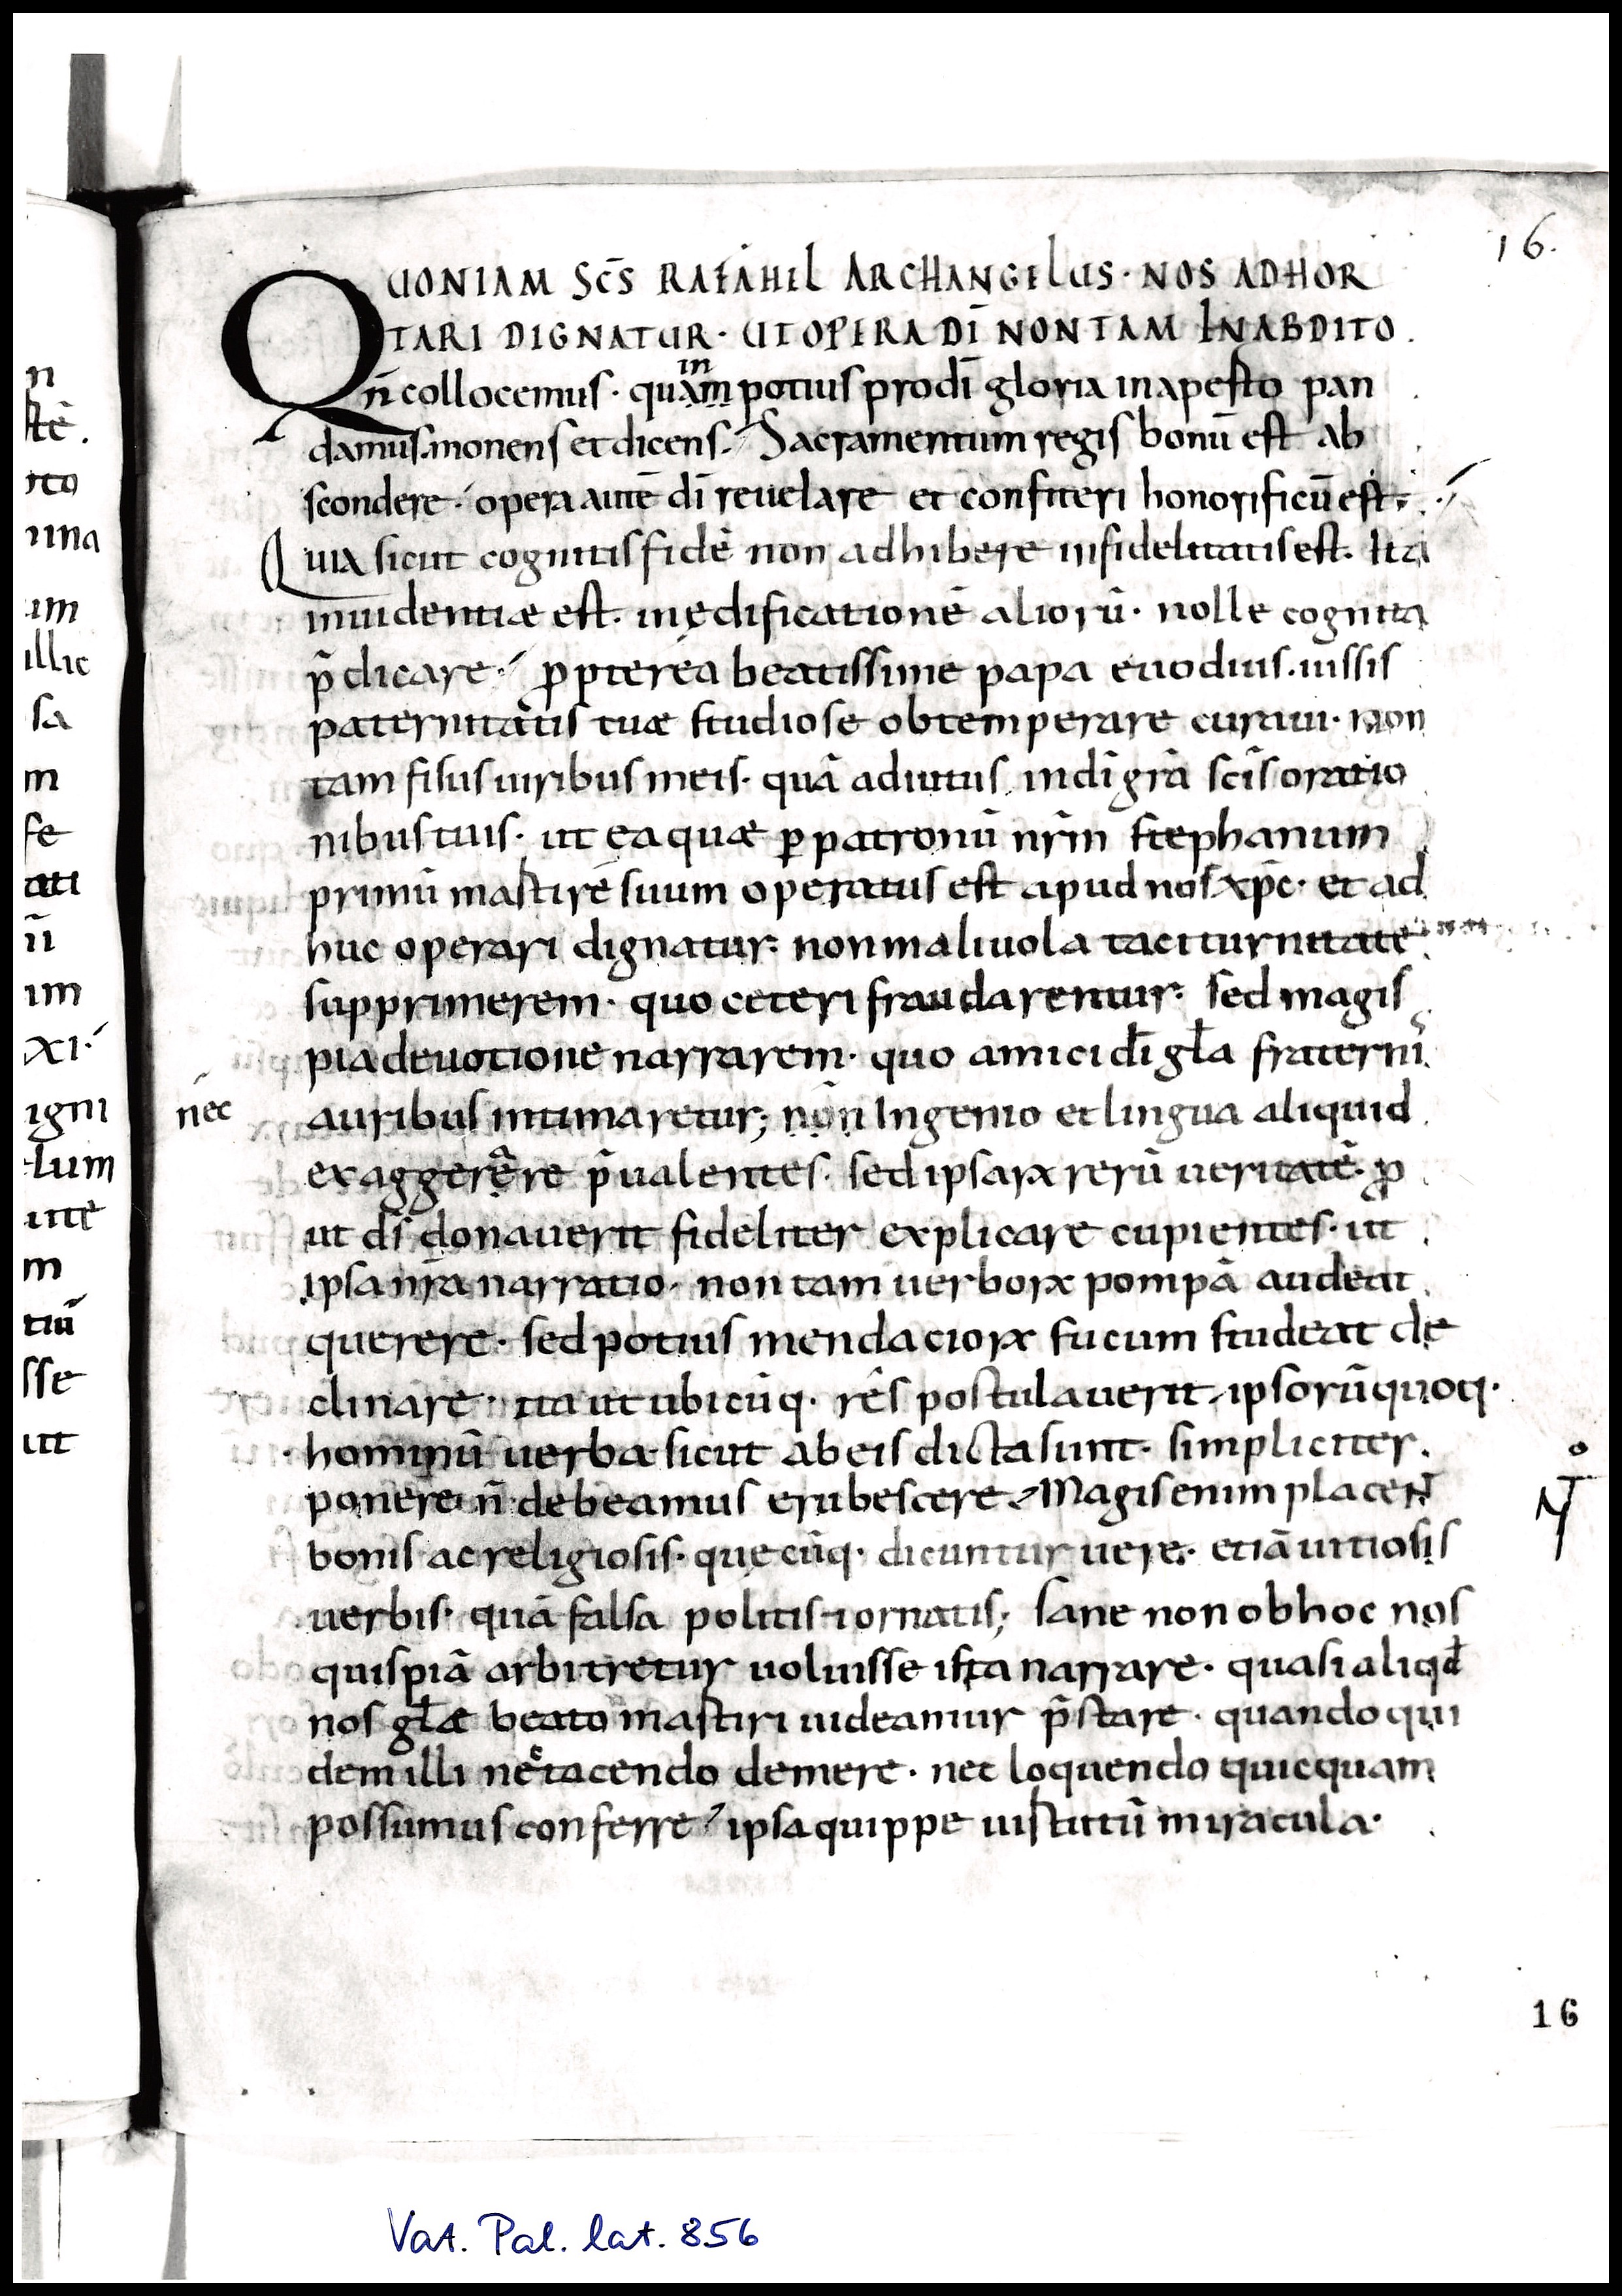 16.
QUONIAM SCS̄ RAFAHEL ARCHANGELUS · NOS ADHOR
TARI DIGNATUR · UT OPERA DĪ NON TAM IN ABDITO
n̄ collocemus · quam in potius pro dī gloria in aperto pan
damus. monens et dicens. Sacramentum regis bonū est ab
scondere · opera autē dī reuelare et confiteri honorificū est.
Quia sicut cognitis fidē non adhibere infidelitatis est. Ita
inuidentiæ est. in ędificationē aliorū · nolle cognita
p̄dicare · ꝓpterea beatissime papa euodius. iussis
paternitatis tuæ studiose obtemperare curaui · non
tam fisus uiribus meis · quā adiutus in dī gr̄a sc̄is oratio
nibus tuis · ut ea quæ ꝑ patronū nr̄m stephanum
primū martirē suum operatus est apud nos xp̄c · et ad
huc operari dignatur · non maliuola taciturnitate
supprimerem · quo ceteri fraudarentur · sed magis
pia deuotione narrarem · quo amici dī gl̄a fraternis
nec auribus intimaretur; non Ingenio et lingua aliquid
exaggerare p̄ualentes · sed ipsaꝝ rerū ueritatē · ꝓ
ut dī donauerit fideliter explicare cupientes · ut
ipsa nr̄a narratio · non tam uerboꝝ pompā audeat
querere · sed potius mendacioꝝ fucum studeat de
clinare · ita ut ubicūq · rēs postulauerit, ipsorū quoq ·
hominū uerba sicut ab eis dicta sunt · simpliciter
ponere n̄ debeamus erubescere. Magis enim placent
bonis ac religiosis · quęcūq · dicuntur uere · etiā uitiosis
uerbis · quā falsa politis ornatis; sane non ob hoc nos
quispiā arbitretur uoluisse ista narrare · quasi aliqd̄
nos gl̄æ beato martiri uideamur p̄stare · quandoqui
dem illi nec tacendo demere · nec loquendo quicquam
possumus conferre ipsa quippe uirtutū miracula ·
16
Vat. Pal. lat. 856